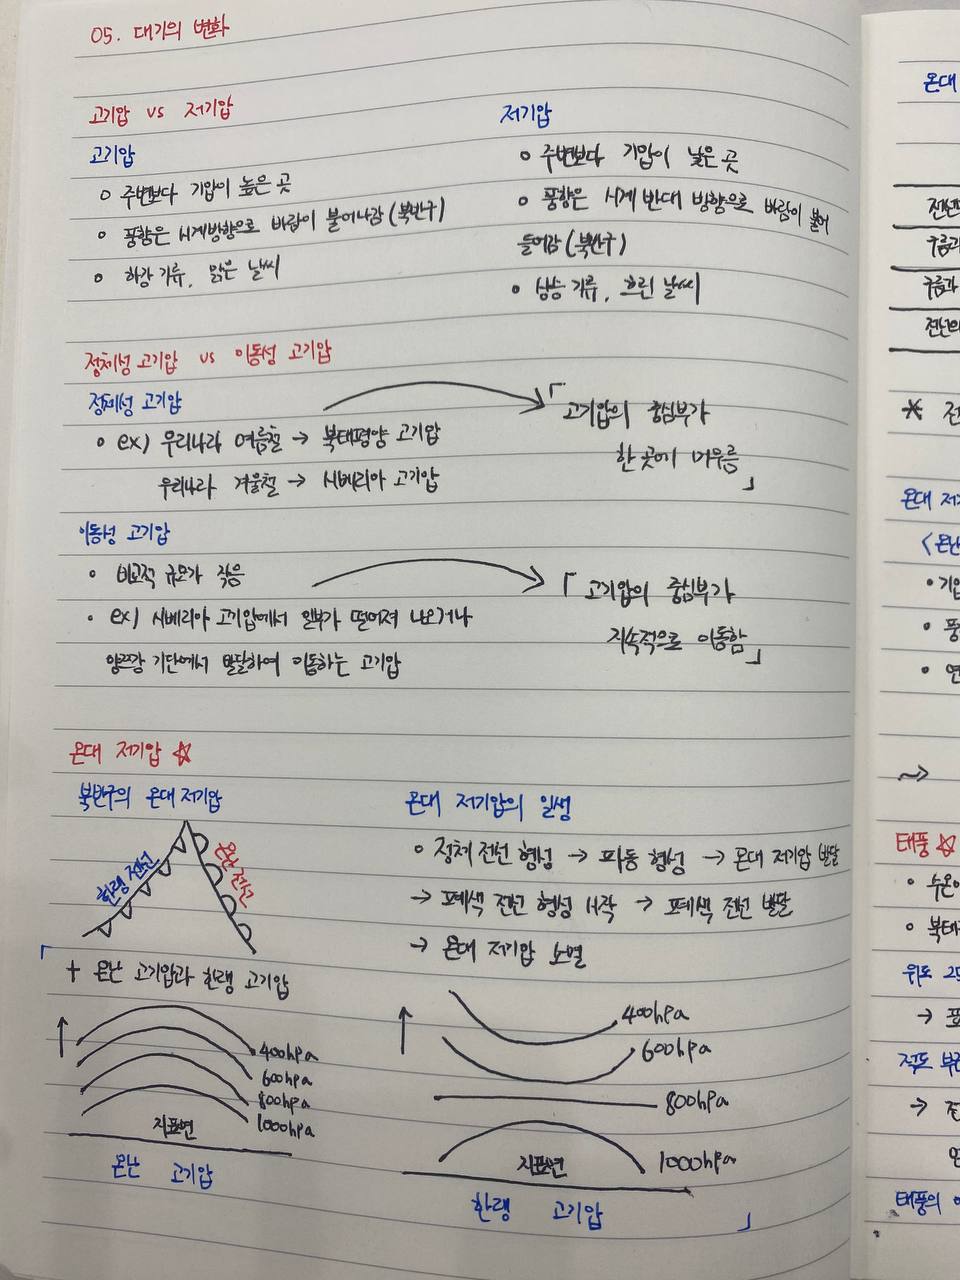 05. 대기의 변화
고기압 vs 저기압
고기압
○ 주변보다 기압이 높은 곳
○ 풍향은 시계방향으로 바람이 불어나감 (북반구)
○ 하강 기류, 맑은 날씨
저기압
○ 주변보다 기압이 낮은 곳
○ 풍향은 시계 반대 방향으로 바람이 불어
들어감 (북반구)
○ 상승 기류, 흐린 날씨
정체성 고기압 vs 이동성 고기압
정체성 고기압
○ ex) 우리나라 여름철 → 북태평양 고기압
우리나라 겨울철 → 시베리아 고기압
「고기압의 중심부가
한 곳에 머무름」
이동성 고기압
○ 비교적 규모가 작음
○ ex) 시베리아 고기압에서 일부가 떨어져 나오거나
양쯔강 기단에서 발달하여 이동하는 고기압
「고기압의 중심부가
지속적으로 이동함」
온대 저기압 ☆
북반구의 온대 저기압
한랭 전선
온난 전선
온대 저기압의 일생
○ 정체 전선 형성 → 파동 형성 → 온대 저기압 발달
→ 폐색 전선 형성 시작 → 폐색 전선 발달
→ 온대 저기압 소멸
「+ 온난 고기압과 한랭 고기압
↑
400hpa
600hpa
800hpa
1000hpa
지표면
온난 고기압
↑
400hpa
600hpa
800hpa
1000hpa
지표면
한랭 고기압」
온대
구름과
구름과
전선의
* 전
온대 저기
<온난
• 기압
• 풍
• 연
태풍 ☆
• 수온이
• 북태
위도
→ 표
적도 부근
→ 전
태풍의